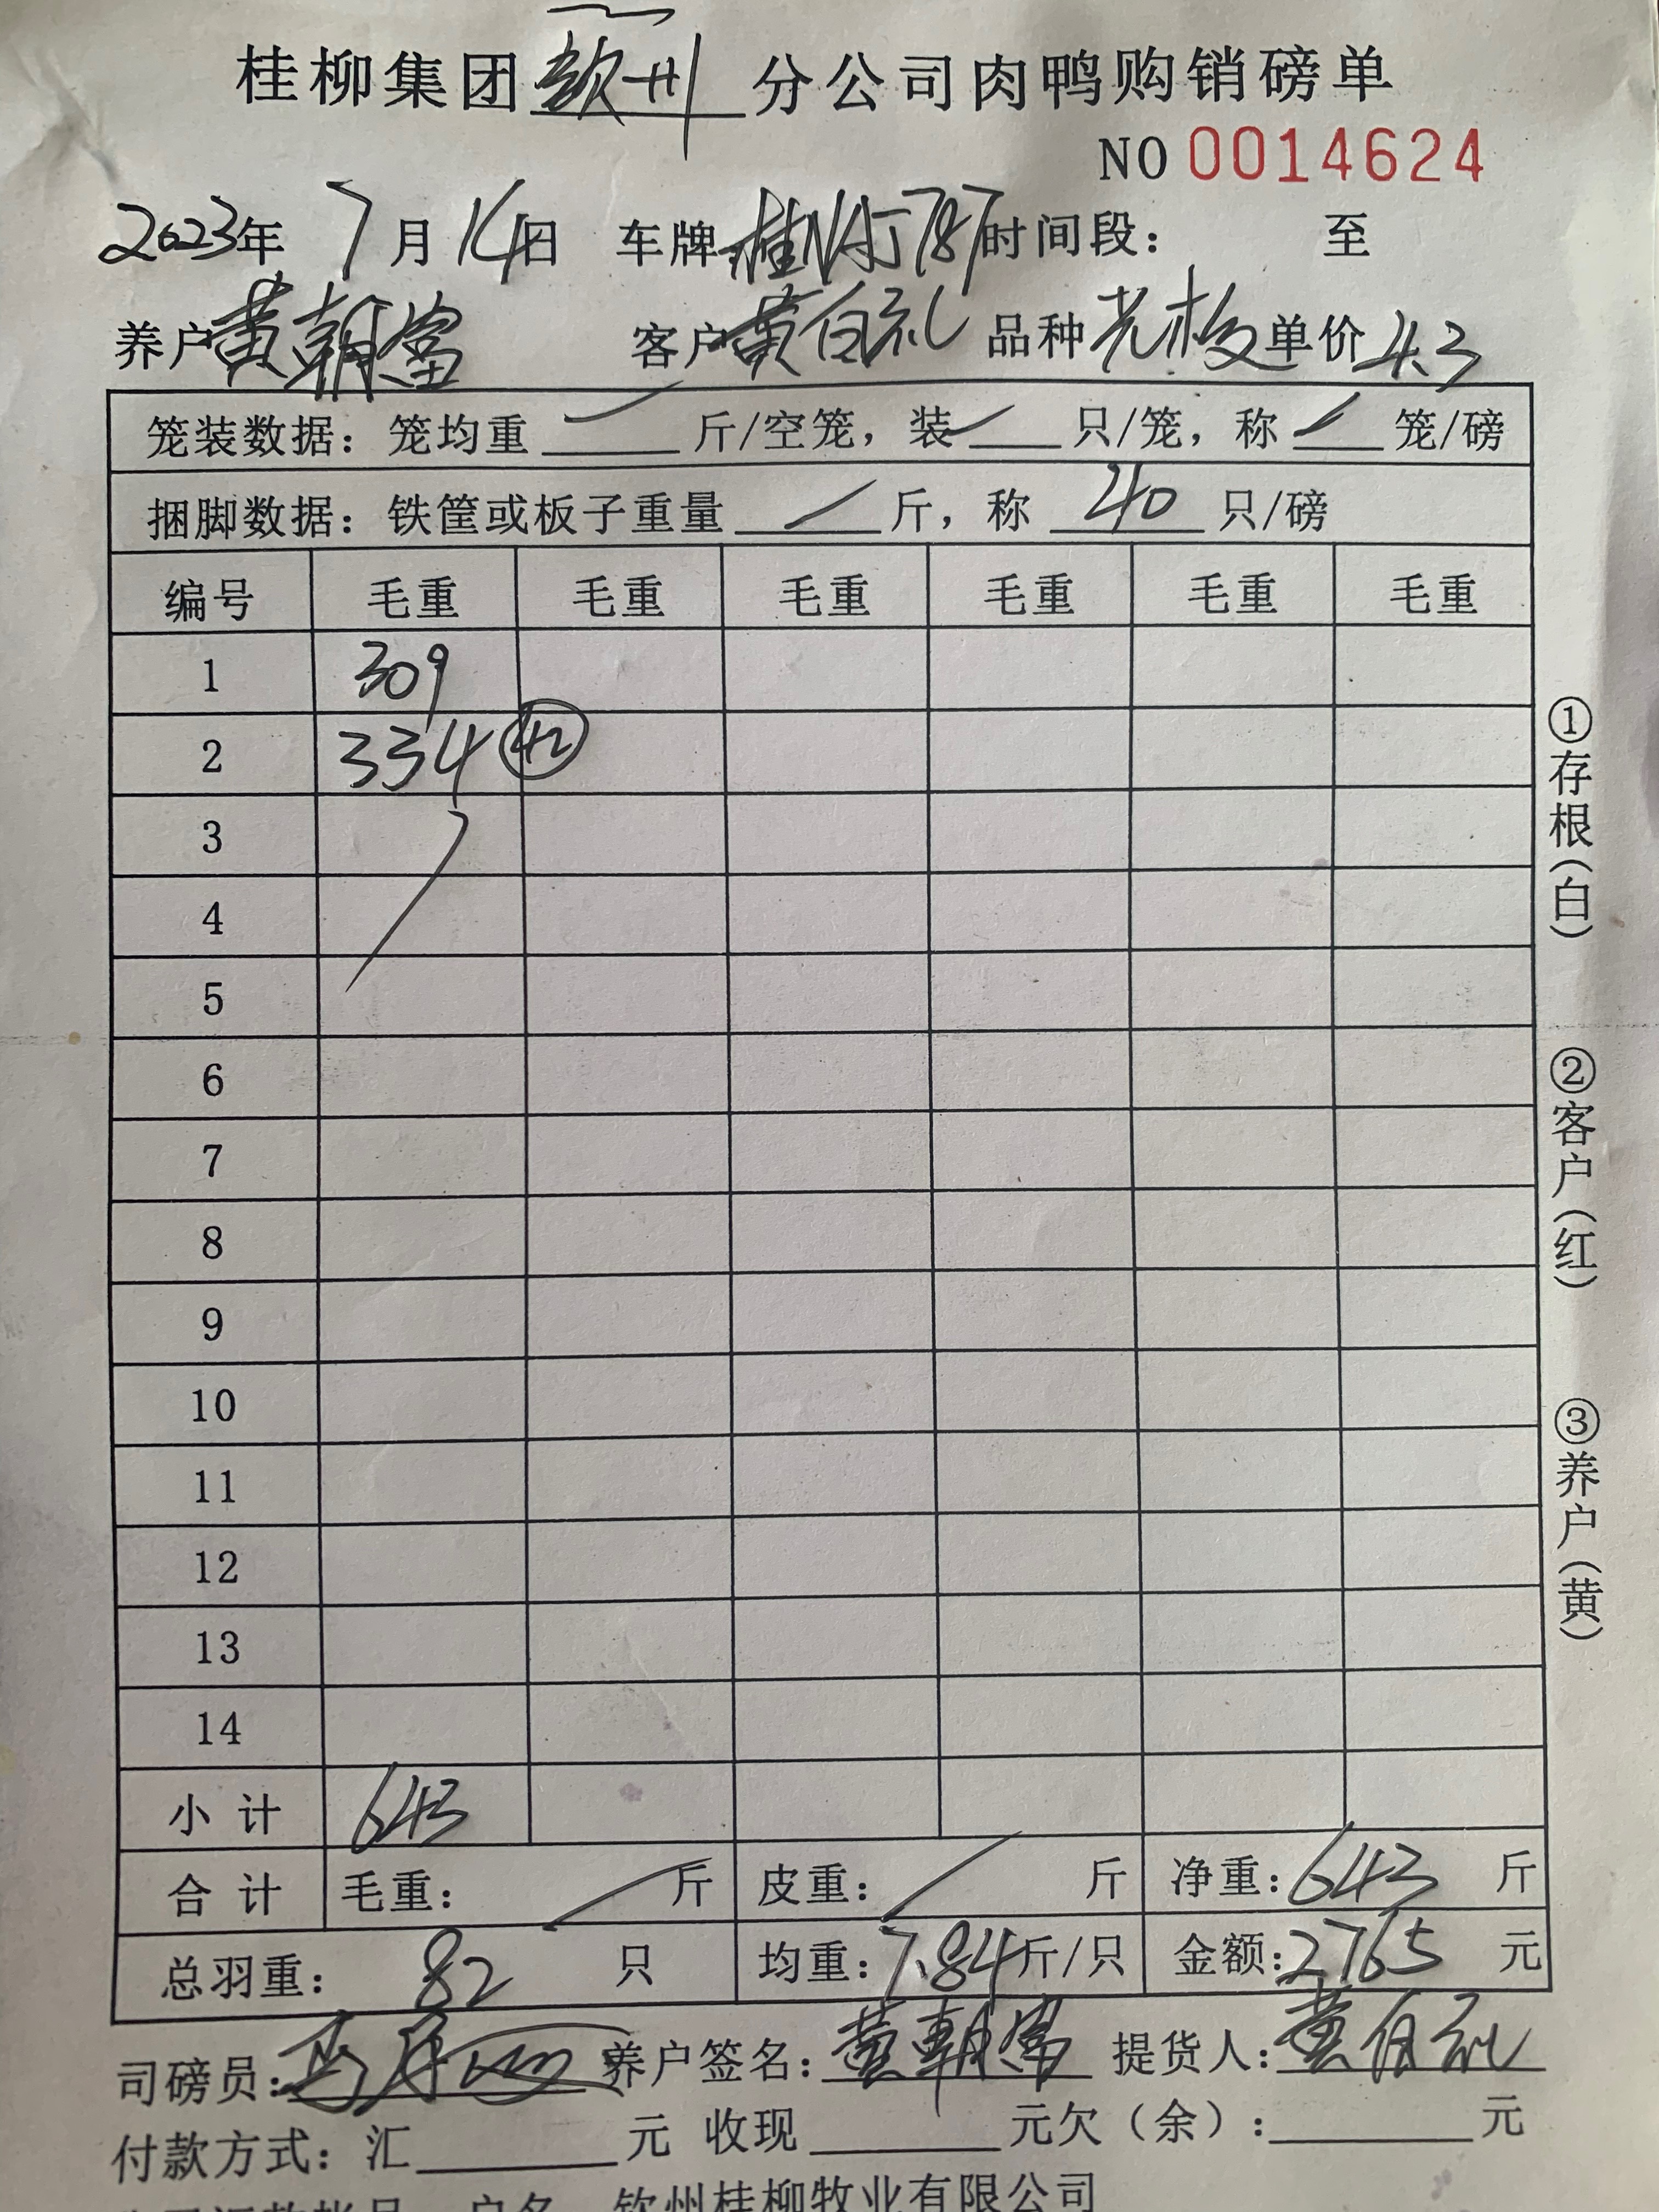 桂柳集团钦州分公司肉鸭购销磅单
NO 0014624
2023年 7月14日 车牌桂NAJ787时间段: 至
养户黄朝富 客户黄自礼 品种 单价4.3
笼装数据:笼均重 斤/空笼,装 只/笼,称 笼/磅
捆脚数据:铁筐或板子重量 斤,称 40 只/磅
编号 毛重 毛重 毛重 毛重 毛重 毛重
1 309
2 334 42
3
4
5
6
7
8
9
10
11
12
13
14
小计 643
合计 毛重: 斤 皮重: 斤 净重:643斤
总羽重: 82 只 均重:7.84斤/只 金额:2765 元
司磅员: 养户签名:黄朝富 提货人:黄自礼
付款方式:汇 元 收现 元欠(余): 元
户名 钦州桂柳牧业有限公司
①存根(白)
②客户(红)
③养户(黄)